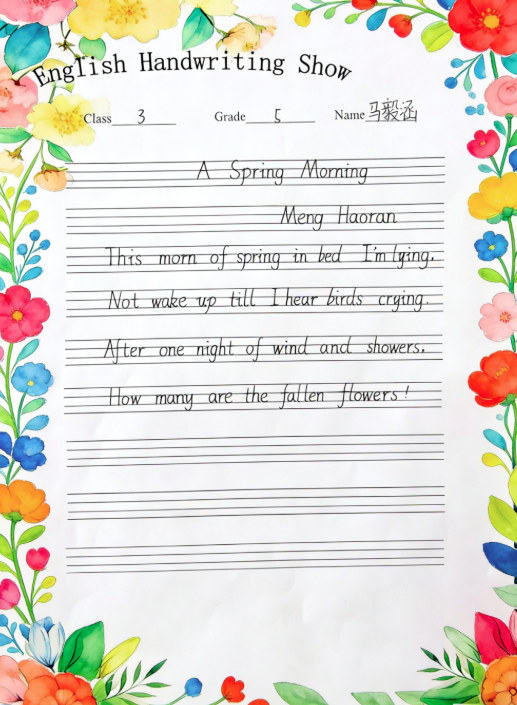 English Handwriting Show
Class 3 Grade 5 Name 马毅涵
A Spring Morning
Meng Haoran
This morn of spring in bed I'm lying.
Not wake up till I hear birds crying.
After one night of wind and showers.
How many are the fallen flowers!